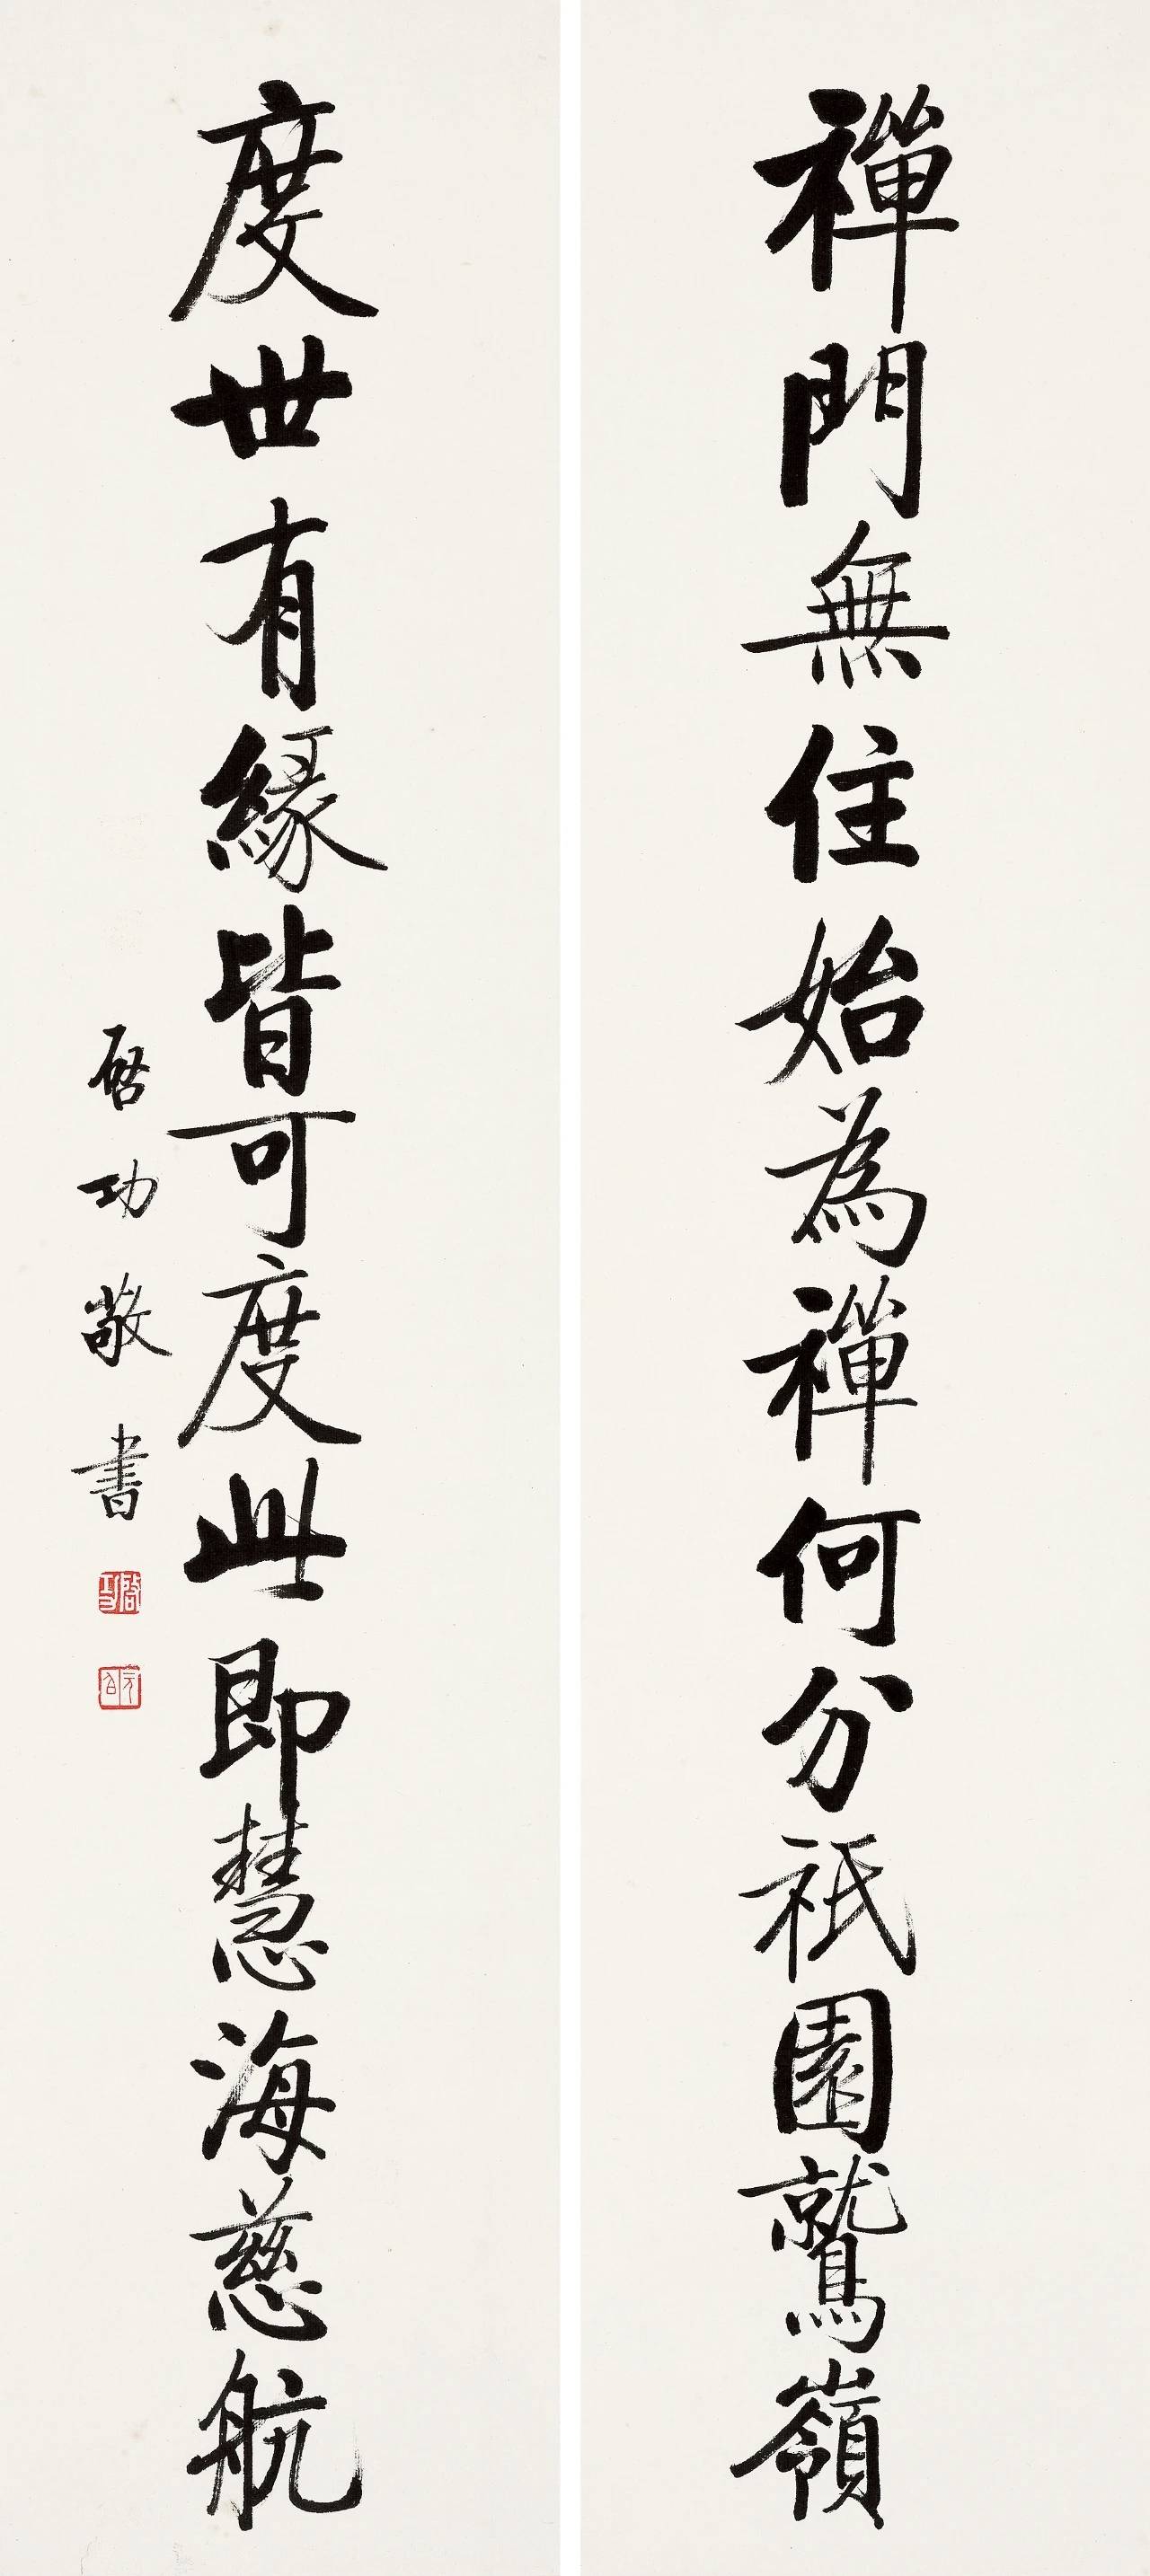 禪門無住始為禪何分祇園鷲嶺
度世有緣皆可度此即慧海慈航
啓功敬書
啓功
元白